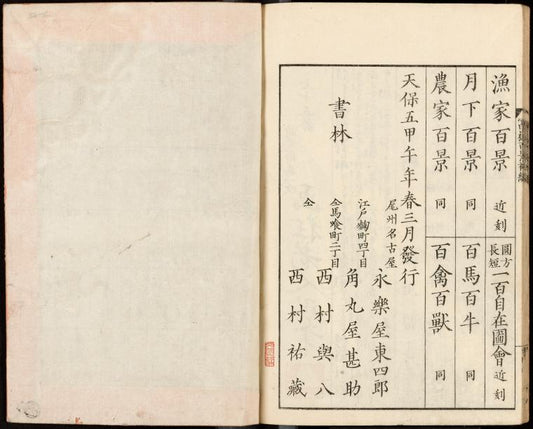 漁家百景 近刻
圓方長短 一百自在圖會 近刻
月下百景 同
百馬百牛 同
農家百景 同
百禽百獸 同
天保五甲午年春三月發行
書林
尾州名古屋 永樂屋東四郎
江戸麹町四丁目 角丸屋甚助
仝馬喰町二丁目 西村與八
仝 西村祐藏